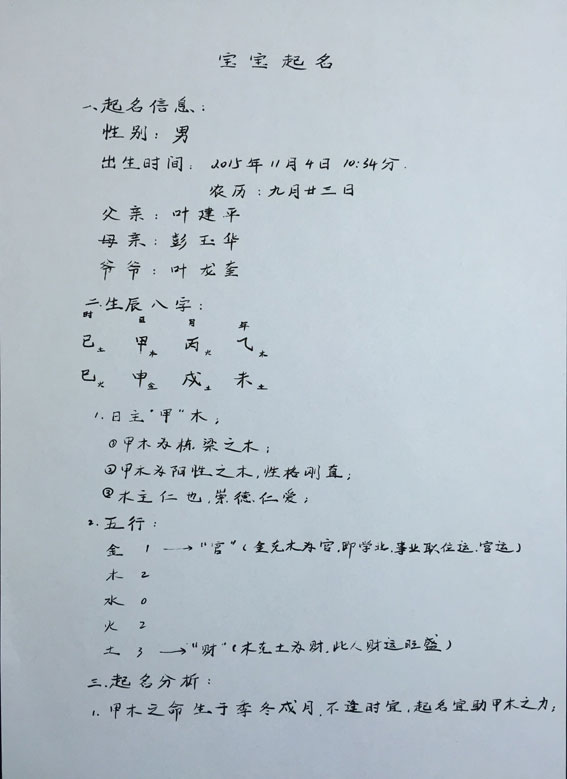 宝宝起名
一、起名信息:
性别: 男
出生时间: 2015年11月4日 10:34分.
农历: 九月廿三日
父亲: 叶建平
母亲: 彭玉华
爷爷: 叶龙奎
二.生辰八字:
时 日 月 年
己土 甲木 丙火 乙木
巳火 申金 戌土 未土
1.日主"甲"木;
①甲木为栋梁之木;
②甲木为阳性之木,性格刚直;
③木主仁也,崇德仁爱;
2.五行:
金 1 → "官"(金克木为官,即学业、事业职位运、官运)
木 2
水 0
火 2
土 3 → "财"(木克土为财,此人财运旺盛)
三.起名分析:
1.甲木之命生于季冬戌月,不逢时宜,起名宜助甲木之力;